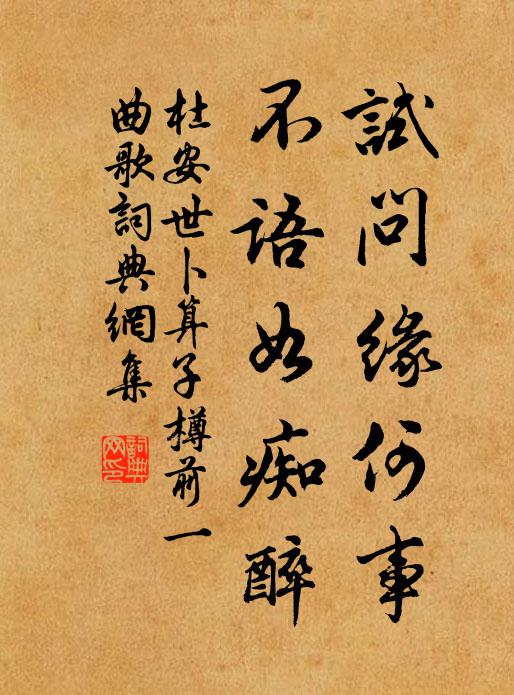 試問緣何事
不語如痴醉
杜安世卜算子樽前一
曲歌詞典網集
詞典網印